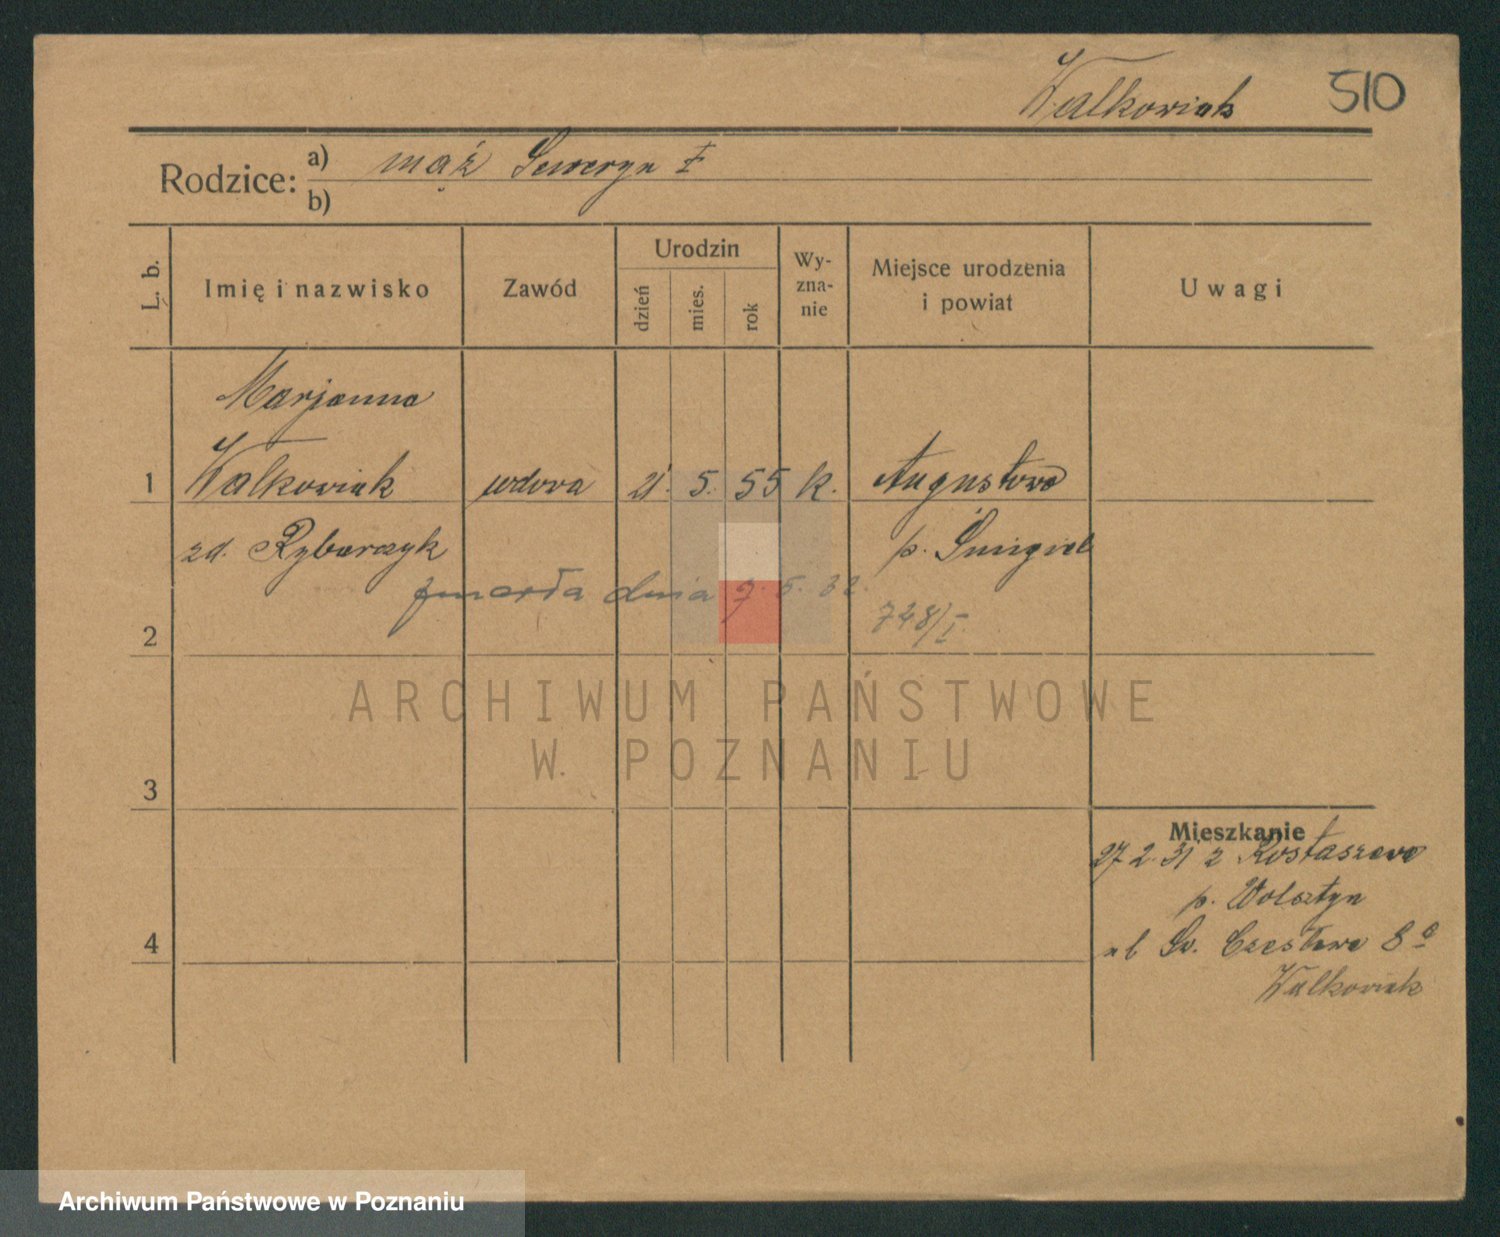 Walkowiak 510
Rodzice: a) mąż Seweryn
b)
L. b.
Imię i nazwisko
Zawód
Urodzin
dzień
mies.
rok
Wy-
zna-
nie
Miejsce urodzenia
i powiat
Uwagi
Marjanna
1 Walkowiak wdowa 21. 5. 55 k. Augustowo
zd. Rybarczyk p. Śmigiel
zmarła dnia 7. 5. 32.
748/I.
2
3
4
Mieszkanie
27 2. 31 z
p. Wolsztyn
ul Św. Czesława 8
Walkowiak
ARCHIWUM PAŃSTWOWE
W POZNANIU
Archiwum Państwowe w Poznaniu